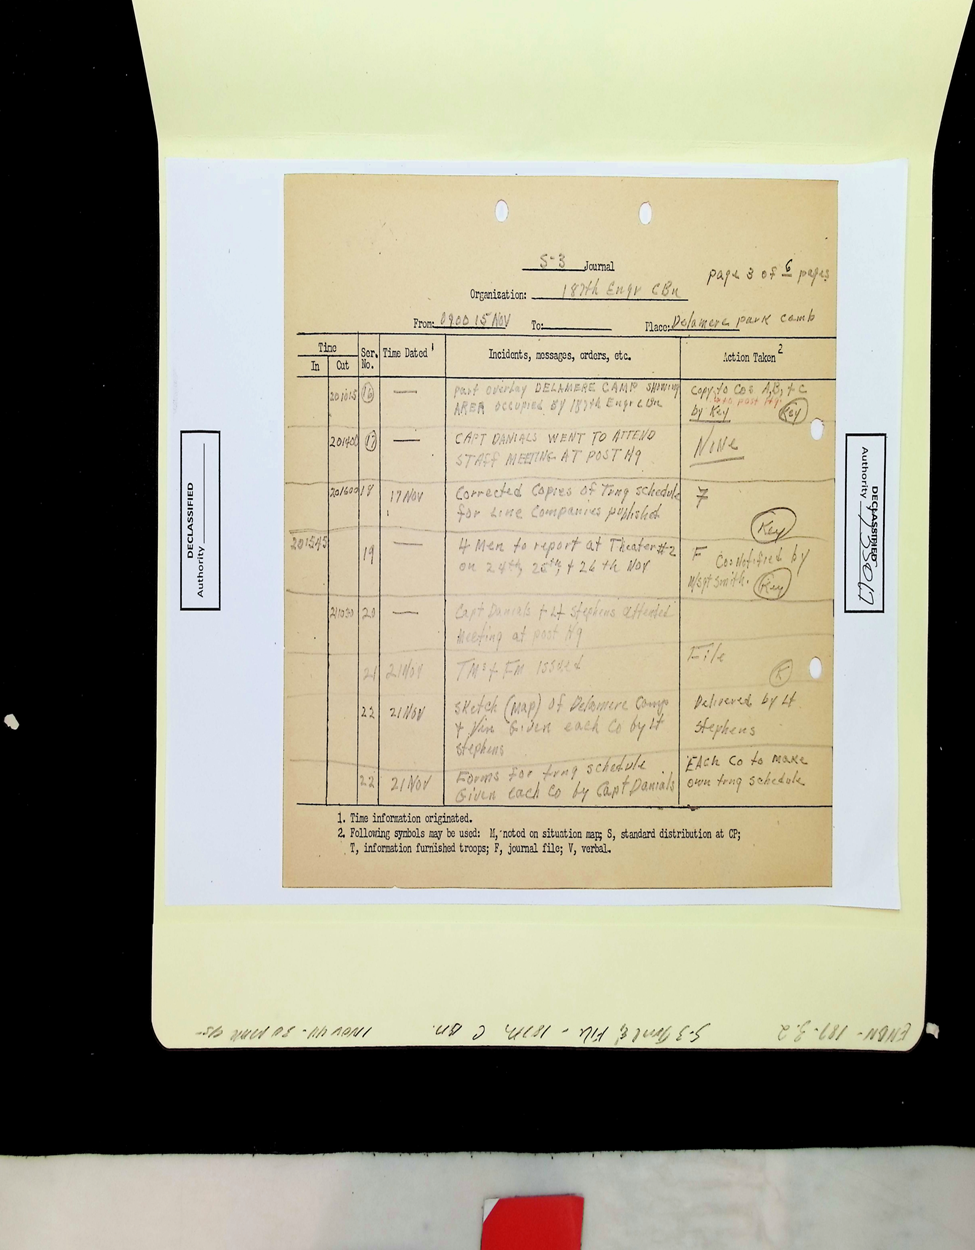 S-3 Journal
page 3 of 6 pages
Organization: 187th Engr CBn
From: 0900 15 NOV To: Place: Delamere park camb
Time
In Out Ser. No. Time Dated 1 Incidents, messages, orders, etc. Action Taken 2
201015 16 — part overlay DELAMERE CAMP SHOWING
AREA occupied by 187th Engr CBn
Copy to Cos A, B, + C
+ to post Hq.
by Key Key
201400 17 — CAPT DANIALS WENT TO ATTEND
STAFF MEETING AT POST Hq
NONE
201600 18 17 Nov Corrected Copies of Trng schedule
for Line Companies published
F
Key
201545 19 — 4 Men to report at Theater #2
on 24th, 25th, + 26th Nov
F Cos Notified by
M/Sgt Smith. Key
211030 20 — Capt Danials + Lt Stephens attended
Meeting at post Hq
21 21 Nov TMs + FM Issued
File
K
22 21 Nov Sketch (Map) of Delamere Camp
+ Given each Co by Lt
Stephens
Delivered by Lt
Stephens
22 21 Nov Forms for trng schedule
Given each Co by Capt Danials
EAch Co to make
own trng schedule
1. Time information originated.
2. Following symbols may be used: M, noted on situation map; S, standard distribution at CP;
T, information furnished troops; F, journal file; V, verbal.
DECLASSIFIED
Authority
DECLASSIFIED
Authority 735017
ENBN-187-3.2 S-3 Jnal & File - 187th C Bn. 1 Nov 44 - 30 Mar 45-